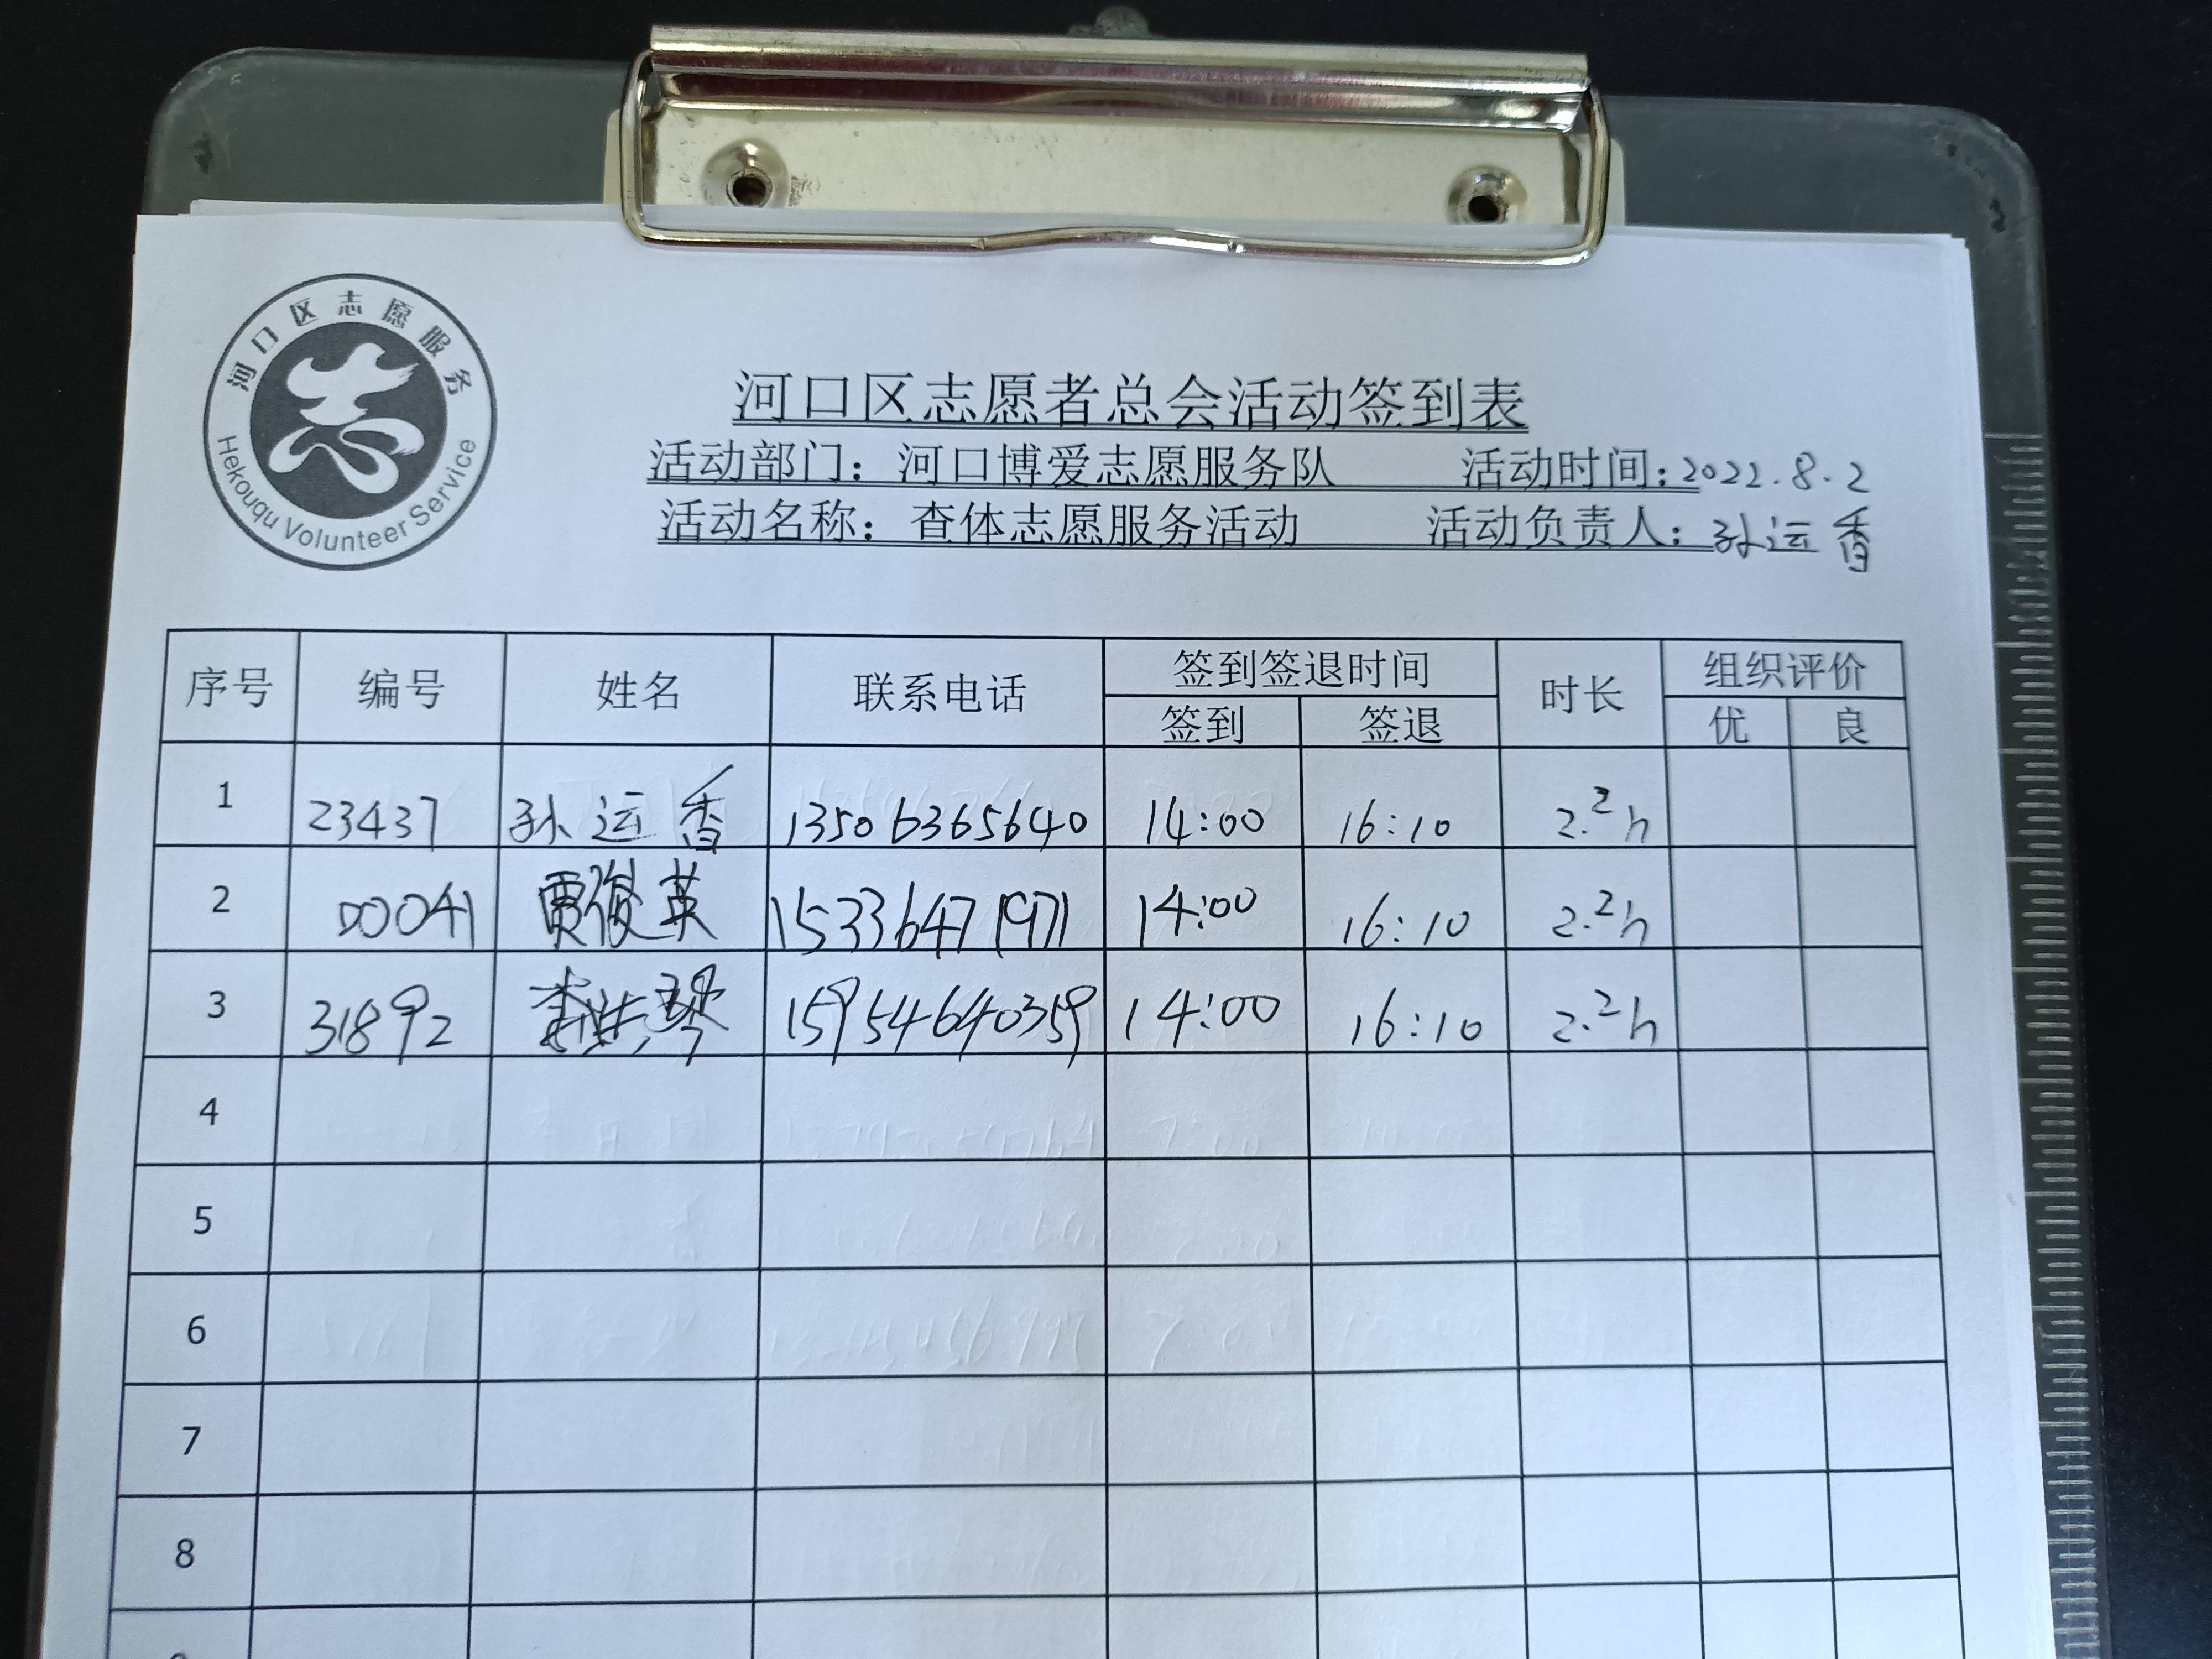 河口区志愿服务
Hekouqu Volunteer Service
河口区志愿者总会活动签到表
活动部门：河口博爱志愿服务队 活动时间：2022.8.2
活动名称：查体志愿服务活动 活动负责人：孙运香
序号 编号 姓名 联系电话 签到签退时间 时长 组织评价
签到 签退 优 良
1 23437 孙运香 13506365640 14:00 16:10 2.2h
2 00041 贾俊英 15336471971 14:00 16:10 2.2h
3 31892 李洪琴 15954640359 14:00 16:10 2.2h
4
5
6
7
8